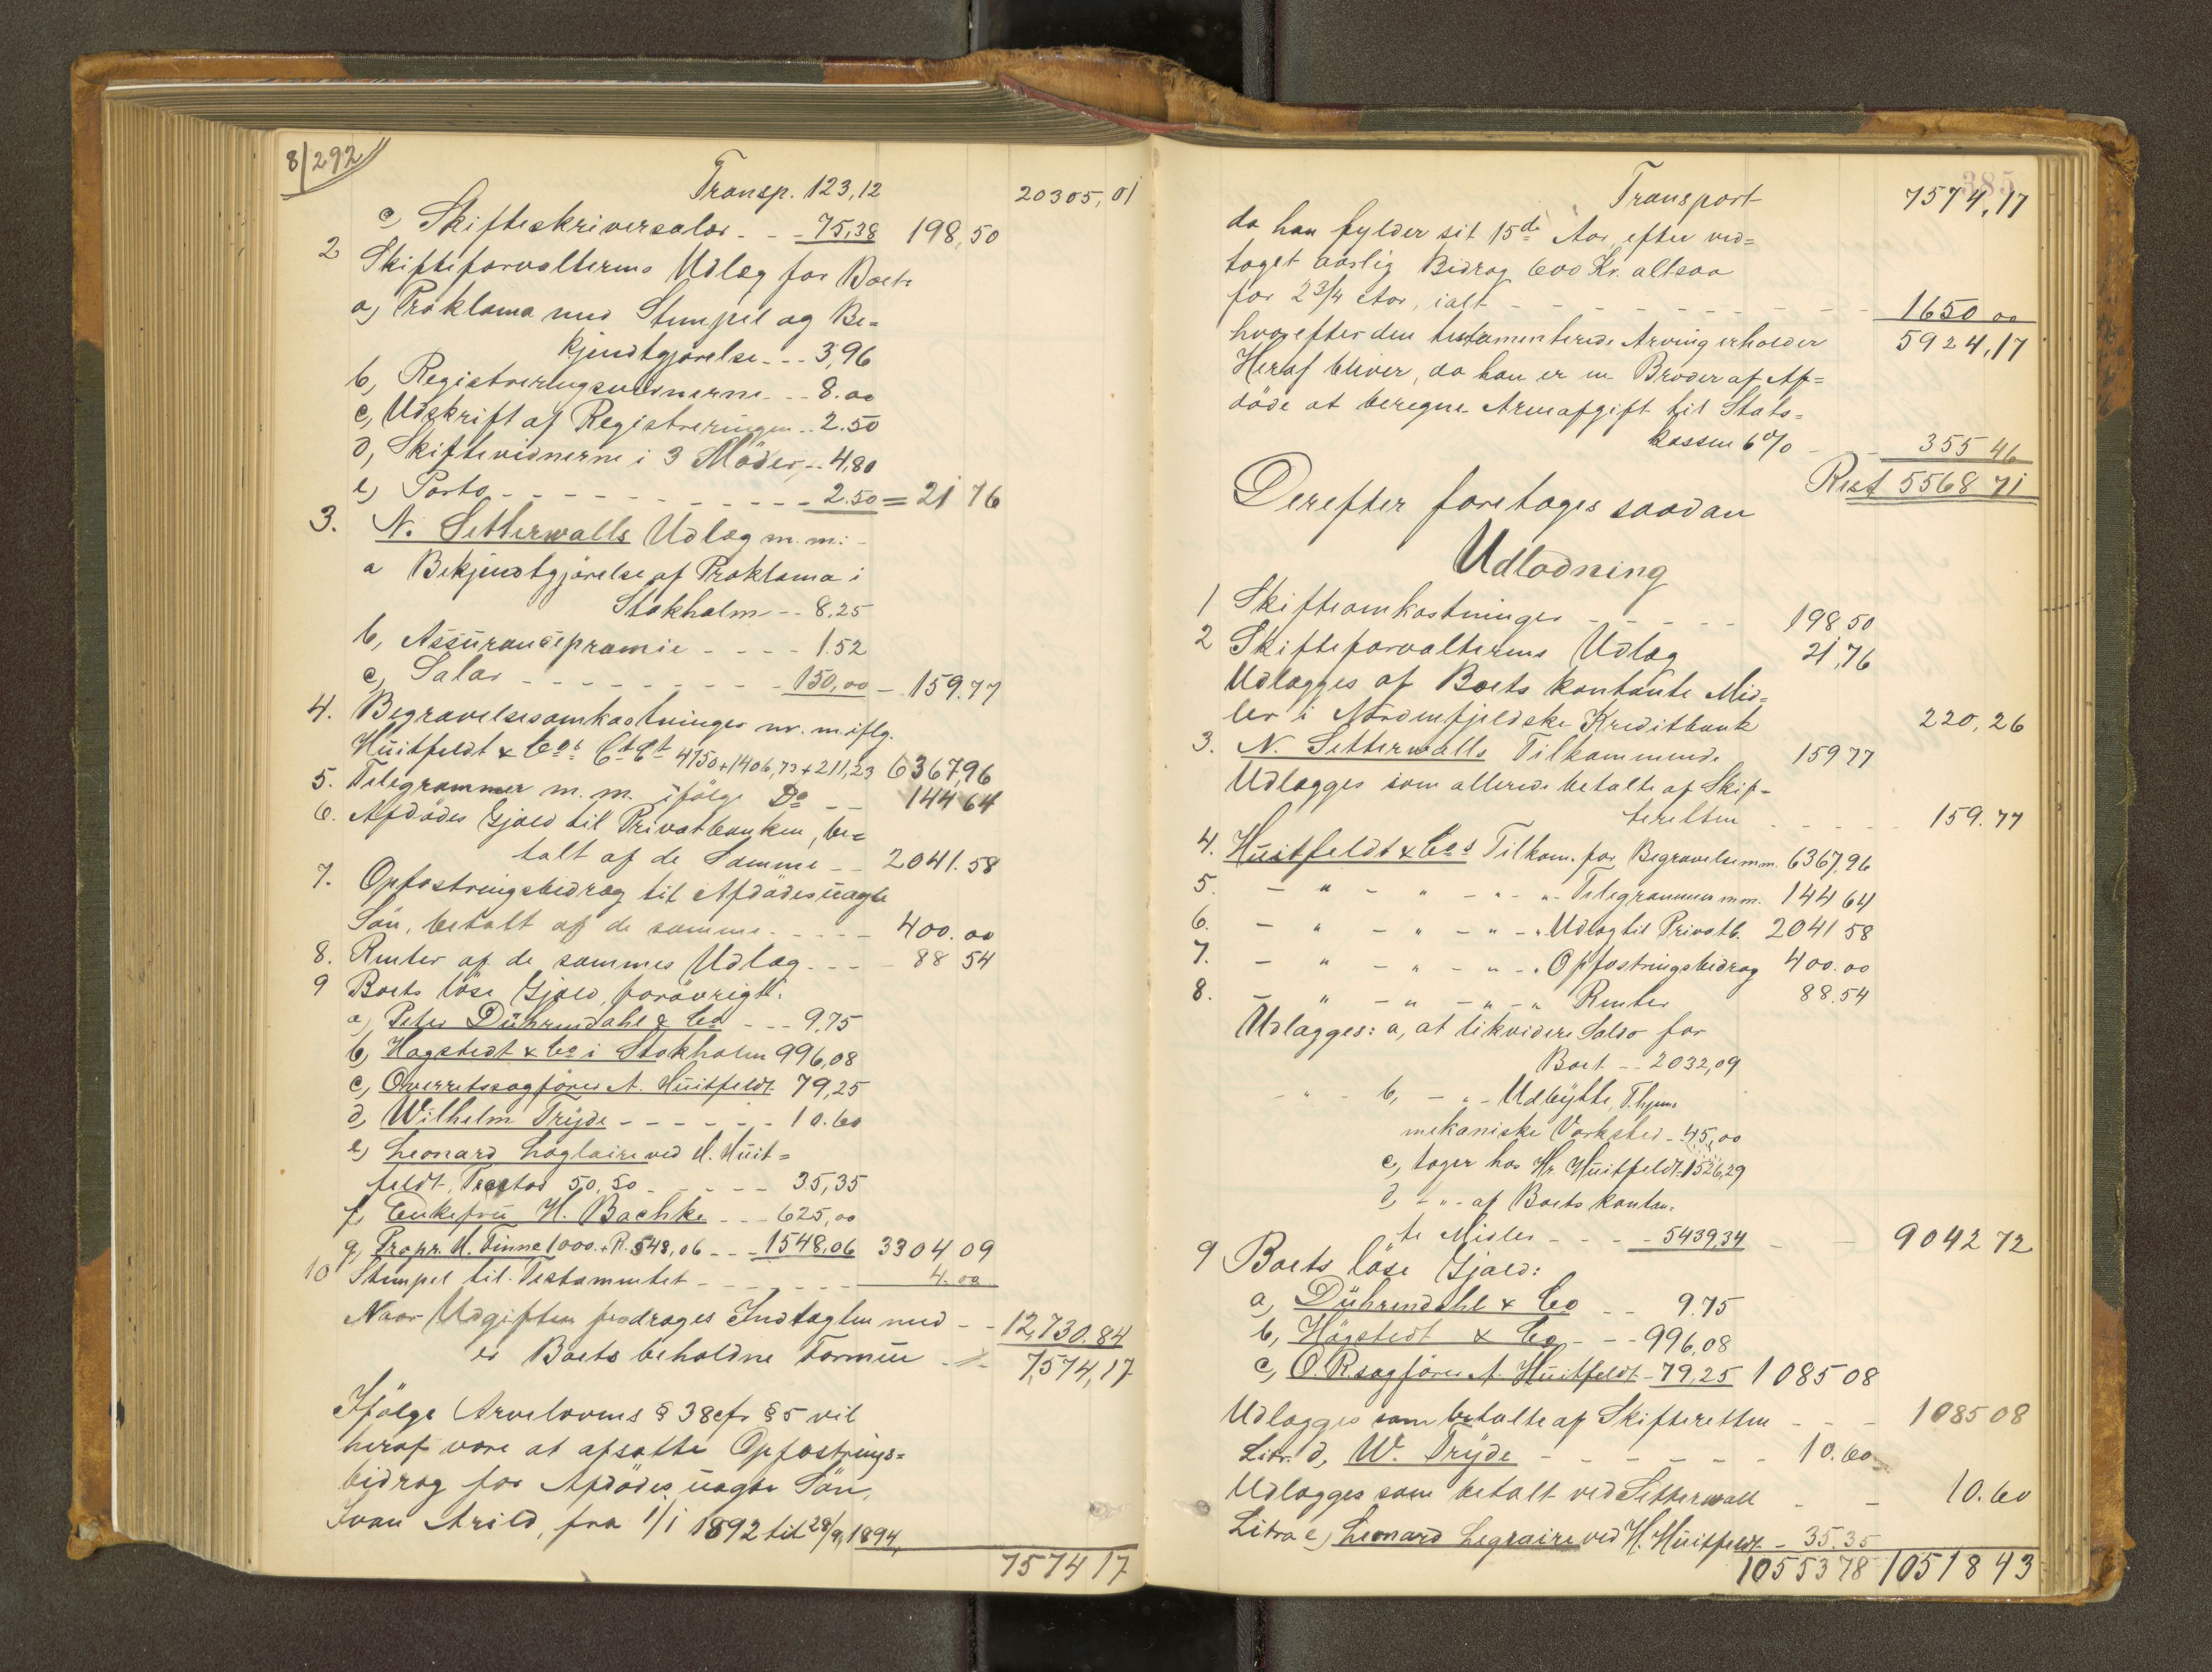 8/292
Transp. 123,12 20305,01
c) Skifteskriversalær - - - 75,38 198,50
2 Skifteforvalterens Udlæg for Boet:
a) Proklama med Stempel og Be=
kjendtgjørelse - - - 3,96
b, Registreringsvidnerne - - - 8.00
c, Udskrift af Registreringen - - 2.50
d, Skiftevidnerne i 3 Möder, - - 4,80
e) Porto - - - - - - - - - - - - 2.50 = 21 76
3. N. Setterwalls Udlæg m. m: -
a Bekjendtgjörelse af Proklama i
Stokholm - - 8,25
b, Assurancepræmie - - - - 1.52
c, Salær - - - - - - - - - 150,00 - 159.77
4. Begravelsesomkostninger m. m. iflg.
Huitfeldt & Cos Ct Ct 4750+1406,73+211,23 6367,96
5. Telegrammer m. m. ifölge Do - - 144 64
6. Afdödes Gjæld til Privatbanken, be=
talt af de Samme - - 2041.58
7. Opfostringsbidrag til Afdödes uægte
Sön, betalt af de samme - - - - - 400.00
8. Renter af de sammes Udlæg - - - - 88 54
9 Boets löse Gjæld, forövrigt:
a) Peter Dührendahl & Co - - - 9,75
b) Hagstedt & Co i Stokholm 996,08
c, Overretssagförer A. Huitfeldt 79,25
d, Wilhelm Tryde - - - - - - 10.60
e) Leonard Loglaire ved H. Huit=
feldt, Tractor 50,50 - - - - - 35,35
f, Enkefru H. Bachke - - - 625,00
g, Propr. H. Finne 1000.+R. 548,06 - - - 1548,06 3304 09
10 Stempel til Testamentet - - - - - - 4.00
Naar Udgiften fradrages Indtægten med - - 12,730.84
er Boets beholdne Formue - - 7,574,17
Ifölge Arvelovens § 38 cfr § 5 vil
heraf være at afsætte Opfostrings=
bidrag for Afdödes uægte Sön,
Ivan Arild, fra 1/1 1892 til 28/9 1894,
7574 17
385
Transport 7574,17
da han fylder sit 15de Aar, efter ved=
taget aarlig Bidrag 600 Kr. altsaa
for 2 3/4 Aar, ialt - - - - - - - - - - 1650 00
hvorefter den testamenterede Arving erholder 5924,17
Heraf bliver, da han er en Broder af Af=
döde at beregne Arveafgift til Stats=
kassen 6 % - - 355 46
Rest 5568 71
Derefter foretages saadan
Udlodning
1 Skifteomkostninger - - - - - 198 50
2 Skifteforvalterens Udlæg 21,76
Udlægges af Boets kontante Mid=
ler i Nordenfjeldske Kreditbank 220,26
3. N. Setterwalls Tilkommende 159 77
Udlægges som allerede betalt af Skif=
teretten - - - - - 159.77
4. Huitfeldt & Cos Tilkom. for Begravelse mm. 6367,96
5. - " - " - " - " - Telegrammer mm. 144 64
6. - " - " - " - " Udlæg til Privatb. 2041 58
7. - " - " - " - " Opfostringsbidrag 400.00
8. - " - " - " - " Renter 88.54
Udlægges: a, at likvidere Saldo for
Boet - - 2032,09
- " - b, - " - Udbytte, Thjems
mekaniske Værksted - 45,00
c, tager hos Hr. Huitfeldt 1526,29
d, - " - af Boets kontan=
te Midler - - - - 5439,34 - - 9042 72
9 Boets löse Gjæld:
a, Dührendahl & Co - - 9.75
b, Hägstedt & Co - - - 996,08
c, O. R. sagförer A. Huitfeldt - 79,25 1085 08
Udlægges som betalte af Skifteretten - - - 1085 08
Litr. d, W. Tryde - - - - - - - 10.60
Udlægges som betalt ved Setterwall - - 10.60
Litra e) Leonard Legraire ved H. Huitfeldt - 35.35
10553 78 10518 43